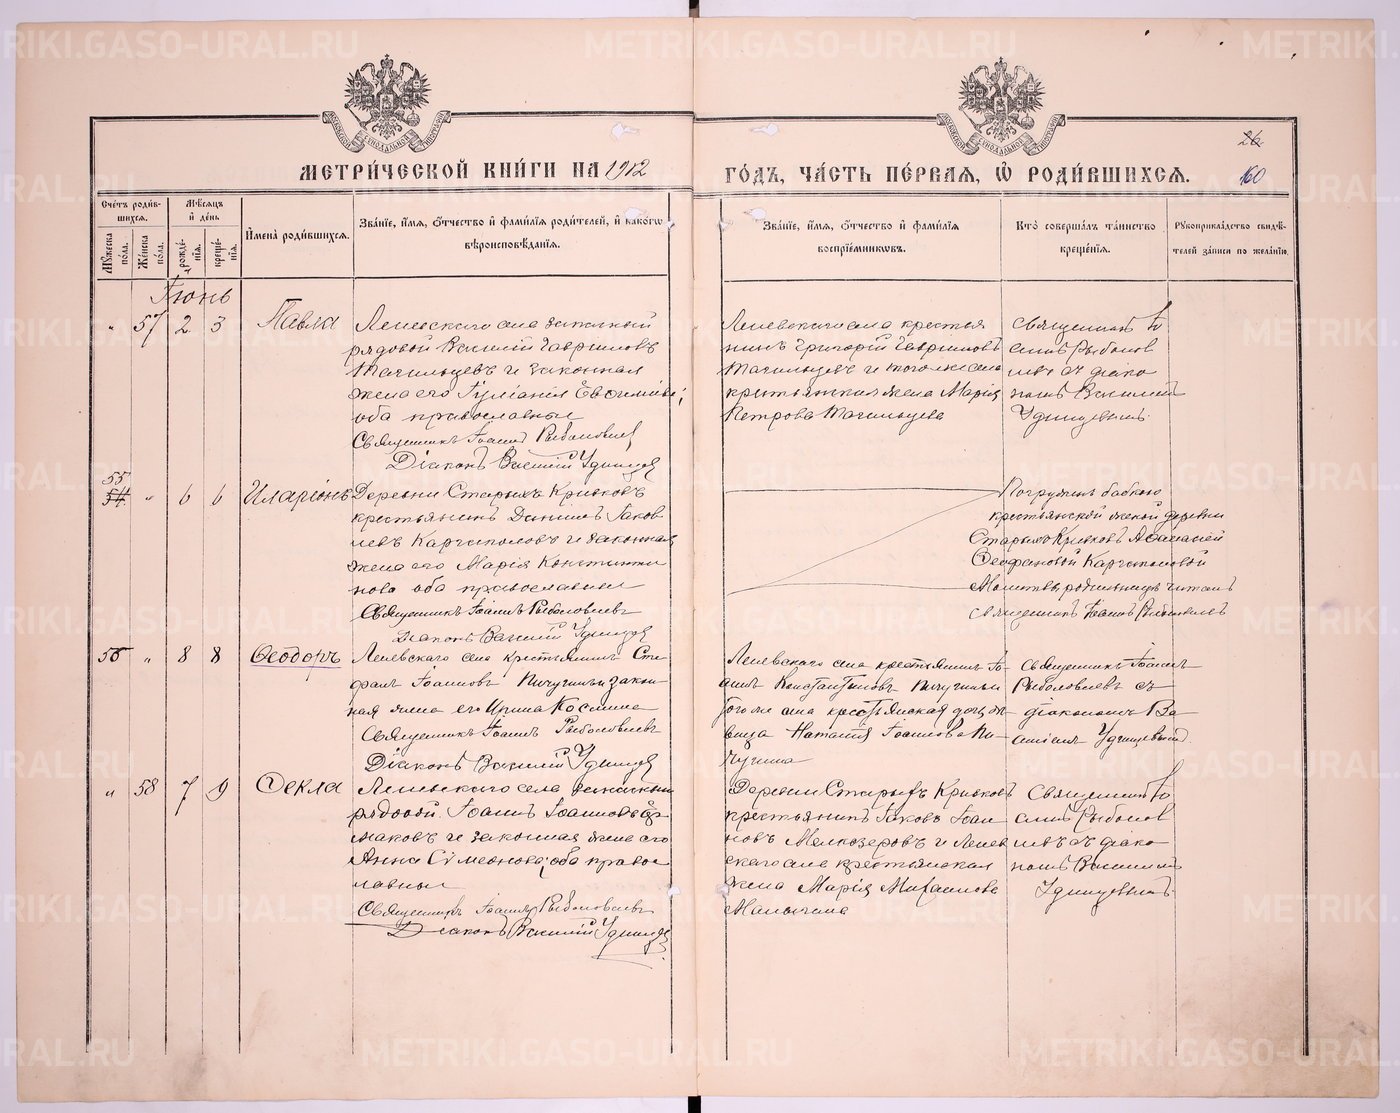 МЕТРИ́ЧЕСКОЙ КНИ́ГИ НА 1912
ГО́ДЪ, ЧА́СТЬ ПЕ́РВАЯ, Ѡ҆ РОДИ́ВШИХСЯ.
26
160
Сче́тъ роди́вшихся.
Мѣ́сяцъ и҆ де́нь
Мꙋ́жеска по́ла.
Же́нска по́ла.
рожде́нїѧ.
креще́нїѧ.
И҆мена̀ роди́вшихся.
Зва́нїе, и҆́мѧ, ѻ҆́тчество и҆ фами́лїѧ роди́телей, и҆ како́гѡ
вѣроисповѣ́данїѧ.
Зва́нїе, и҆́мѧ, ѻ҆́тчество и҆ фами́лїѧ
воспрїе́мникѡвъ.
Кто̀ соверша́лъ та́инство
креще́нїѧ.
Рꙋкоприкла́дство свидѣ́-
телей за́писи по жела́нїю.
Іюнь
„ 57 2 3 Павла
Лелевскаго села запасный
рядовой Василій Гавриловъ
Тагильцевъ и законная
жена его Іуліанія Евсиміева;
оба православные
Священникъ Іоаннъ Рыболовлевъ
Діаконъ Василій Удинцев
Лелевскаго села крестья
нинъ Григорій Гавриловъ
Тагильцевъ и того же села
крестьянская жена Марія
Петрова Тагильцева
Священникъ Іо
аннъ Рыболов
левъ съ діако
номъ Василіем
Удинцевымъ.
55
54 „ 6 6 Иларіонъ
Деревни Старыхъ Кривковъ
крестьянинъ Даніилъ Іаков
левъ Каргаполовъ и законная
жена его Марія Константи
нова оба православные
Священникъ Іоаннъ Рыболовлевъ
Діаконъ Василій Удинцев
Погружен бабкою
крестьянской женой деревни
Старыхъ Кривковъ Аѳанасіей
Ѳеофановой Каргаполовой
Молитвы родильницѣ читалъ
священникъ Іоаннъ Рыболовлевъ
56 „ 8 8 Ѳеодоръ
Лелевскаго села крестьянинъ Сте-
фанъ Іоанновъ Пичугинъ и закон-
ная жена его Ирина Космина
Священникъ Іоаннъ Рыболовлевъ
Діаконъ Василій Удинцев
Лелевскаго села крестьянинъ Іо-
аннъ Константиновъ Пичугинъ и
того же села крестьянская дочь дѣ-
вица Наталія Іоаннова Пи-
чугина
Священникъ Іоаннъ
Рыболовлевъ съ
діакономъ Ва-
силіемъ Удинцевымъ.
„ 58 7 9 Ѳекла
Лелевскаго села запасный
рядовой Іоаннъ Іоанновъ Ер-
маковъ и законная жена его
Анна Сѵмеонова, оба право-
славные
Священникъ Іоаннъ Рыболовлевъ
Діаконъ Василій Удинцев
Деревни Старыхъ Кривковъ
крестьянинъ Іаковъ Іоан-
новъ Мелкозеровъ и Лелев
скаго села крестьянская
жена Марія Михаилова
Священникъ Іо
аннъ Рыболов
левъ съ діако
номъ Василіем
Удинцевымъ.
METRIKI.GASO-URAL.RU